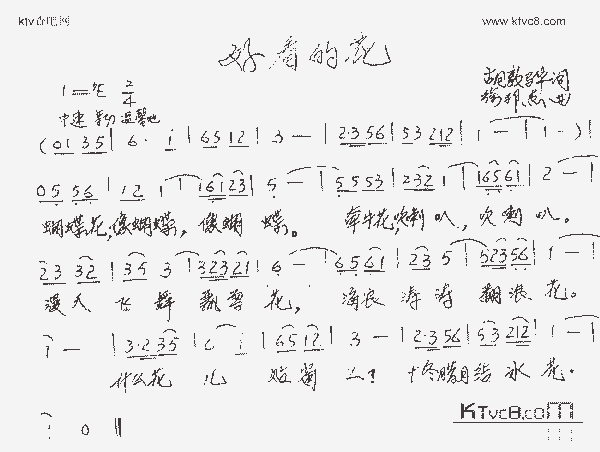 www.ktvc8.com
好看的花
1=♭E 2/4
(0135|6·i|6512|3-|2·356|53212|1-|1-)|
055 56|12 1|161231|5-|5553|2321|16561|2-|
蝴蝶花,像蝴蝶,像蝴蝶。牵牛花,吹喇叭,吹喇叭。
23 32|35 3|32321|6-|6561|23 5|52356|1-|
漫天飞舞飘雪花,海浪涛涛翻浪花。
1-|3·235|6 i|6512|3-|2·356|53212|1-|
什么花儿 十冬腊月结冰花。
1 0‖
KTvc8.com